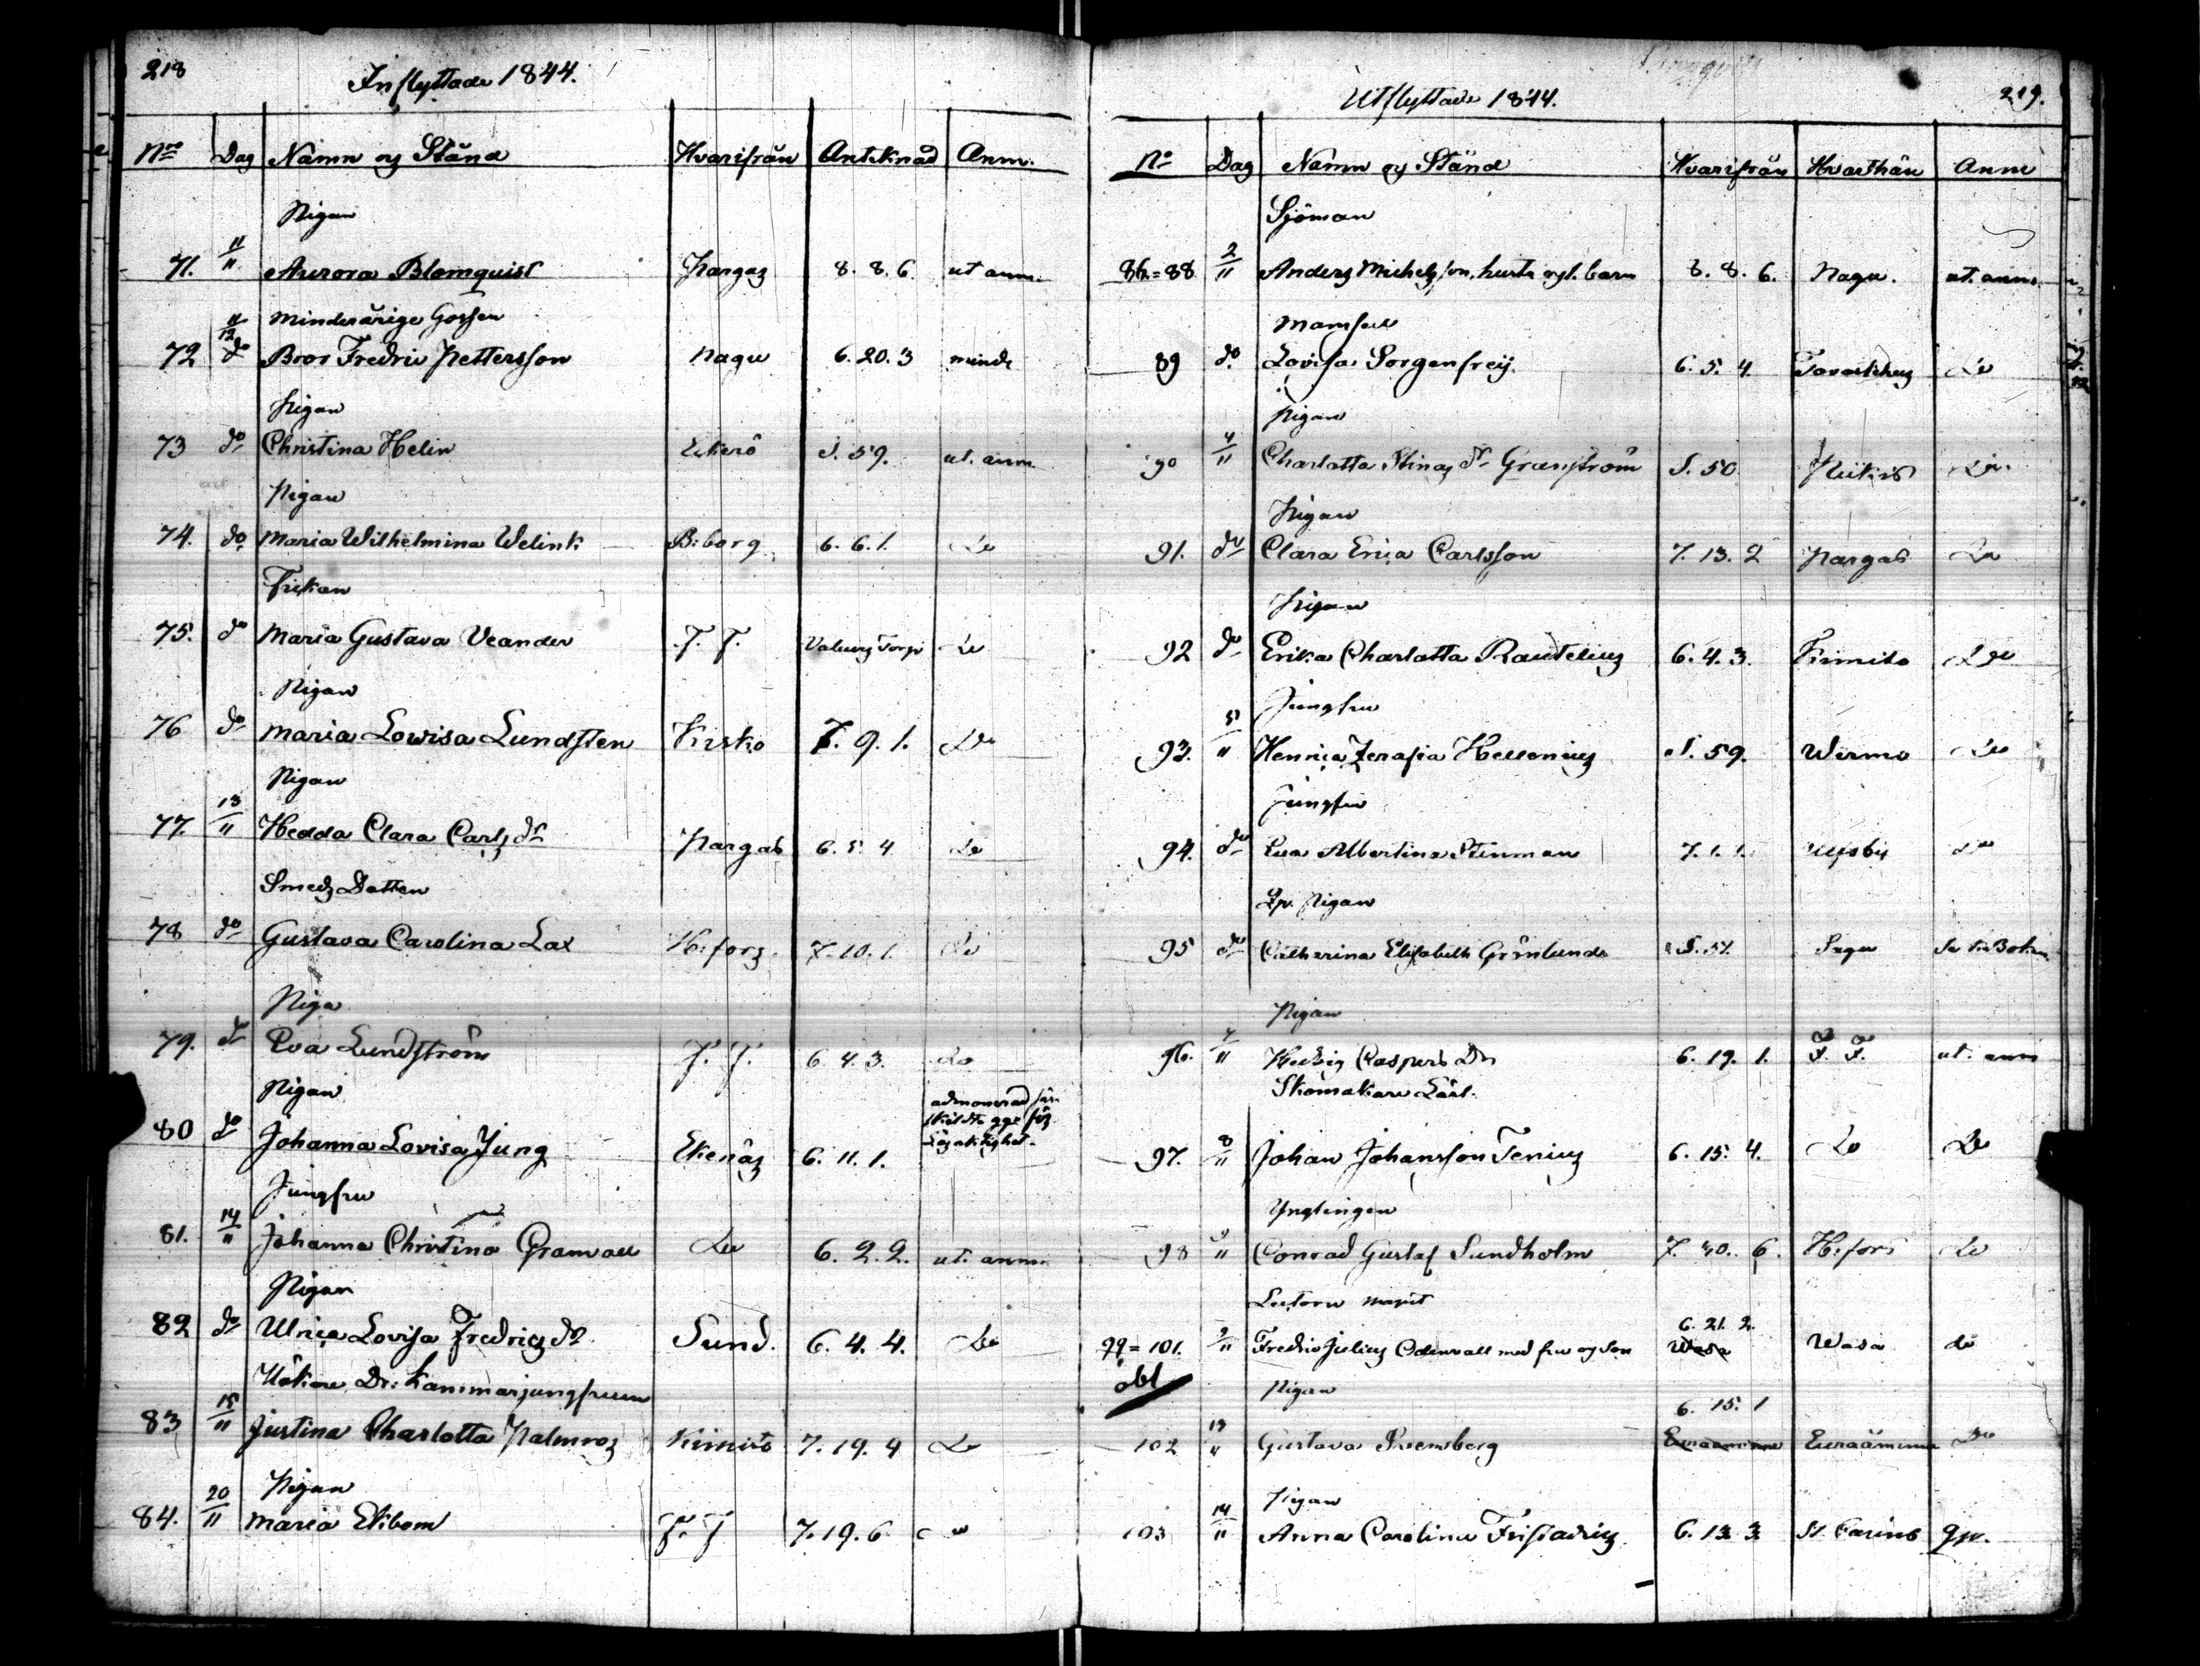 218
Inflyttade 1844.
No Dag Namn og Stånd Hvarifrån Antecknad Anm.
Pigan
71. 11/11 Aurora Blomquist Pargas 8. 8. 6. ut anm.
Minderårige Gossen
72 11/12 do Bror Fredric Pettersson Nagu 6. 20. 3 minde
Pigan
73 do Christina Helin Ekerö S. 59. ut. anm.
Pigan
74. do Maria Wilhelmina Welink B:borg 6. 6. 1. Do
75. do Maria Gustava Veander F. F. Do
Pigan
76 do Maria Lovisa Lundsten Kisko 7. 9. 1. Do
Pigan
77. 13/11 Hedda Clara Carls dr Pargas 6. 5. 4 Do
Smeds Dotten
78 do Gustava Carolina Lax H:fors. 7. 10. 1. Do
Piga
79. do Eva Lundström F. F. 6. 4. 3. Do
Pigan
80 do Johanna Lovisa Jung Ekenäs 6. 11. 1. admonerad
Jungfru
81. 14/11 Johanna Christina Granvall Do 6. 2. 2. ut. anm.
Pigan
82 do Ulrica Lovisa Fredrics dr Sund. 6. 4. 4. Do
Kammarjungfrun
83 15/11 Justina Charlotta Palmros Kimito 7. 19. 4 Do
Pigan
84. 20/11 Maria Ekbom F. F 7. 19. 6 Do
219.
Utflyttade 1844.
No Dag Namn og Stånd Hvarifrån Hvarthän Anm
Sjöman
86.=88 2/11 Anders Michelsson, hustr og 1. barn 8. 8. 6. Nagu. ut. anm.
Mamsell
89 do. Lovisa Sorgenfreij. 6. 5. 4. Tavastehus Do
Pigan
90 4/11 Charlotta Stinas dr Granström S. 50 Do
Pigan
91. do Clara Erica Carlsson 7. 13. 2 Pargas Do
Pigan
92 do Erika Charlotta Rautelius 6. 4. 3. Kimito Do
Jungfru
93. 5/11 Henrica Zerafia Hellenius S. 59. Wirmo Do
Jungfru
94. do Eva Albertina Stenman 7. 1. 1. do
Pigan
95 do Catharina Elisabeth Grönlund S. 57. Sagu
Pigan
96. 7/11 Hedvig Caspers Dr 6. 19. 1. F. F. ut. anm
Skomakare Lärl.
97. 8/11 Johan Johansson Tenius 6. 15. 4. Do Do
Ynglingen
98 Conrad Gustaf Sundholm 7. 30. 6. H:fors Do
Lectorn
99=101. 9/11 Fredric Julius Odenvall med fru og Son 6. 21. 2. Wasa Wasa do
obs
Pigan
102 13/11 Gustava 6. 15. 1 Euraåminne Euraåminne Do
Pigan
103 14/11 Anna Carolina 6. 13. 3 St. Carins